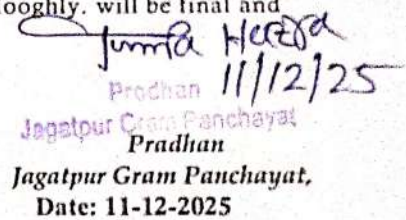 hooghly. will be final and
Tumpa Hazra
11/12/25
Prodhan
Jagatpur Gram Panchayat
Pradhan
Jagatpur Gram Panchayat,
Date: 11-12-2025